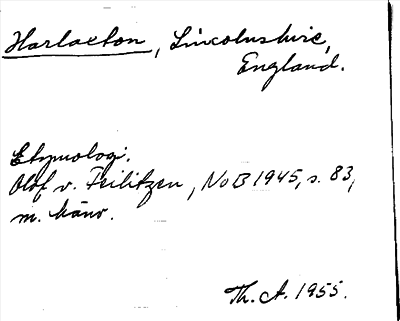 Harlaxton, Lincolnshire,
England.
Etymologi.
Olof v. Feilitzen, NoB 1945, s. 83,
m. hänv.
Th. A. 1955.